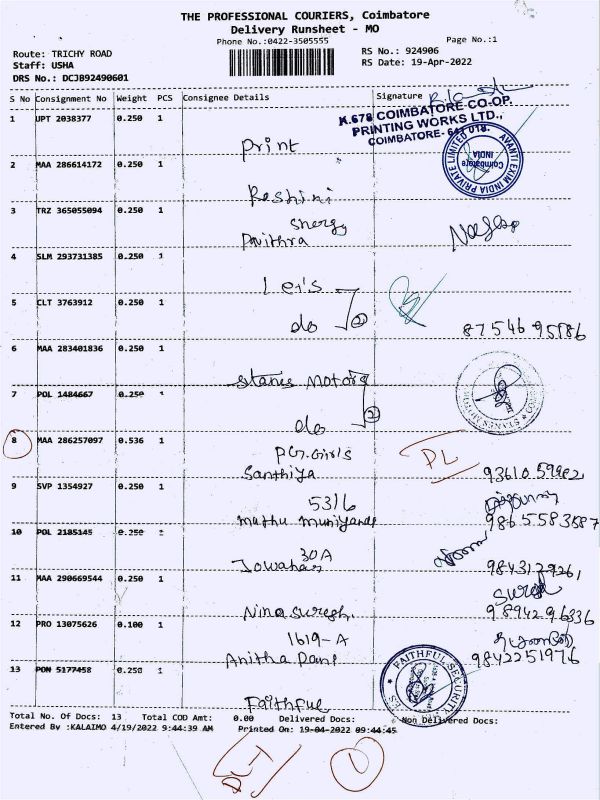 THE PROFESSIONAL COURIERS, Coimbatore
Delivery Runsheet - MO
Phone No.:0422-3505555
Page No.:1
Route: TRICHY ROAD
RS No.: 924906
Staff: USHA
RS Date: 19-Apr-2022
DRS No.: DCJB92490601
S No Consignment No Weight PCS Consignee Details Signature
K.678 COIMBATORE CO-OP.
PRINTING WORKS LTD.,
COIMBATORE- 641 018.
1 UPT 2038377 0.250 1
Print
AVANTI EXIM INDIA PRIVATE LIMITED
Coimbatore
INDIA
2 MAA 286614172 0.250 1
Reshini
3 TRZ 365055094 0.250 1
Pavithra
4 SLM 293731385 0.250 1
Lei's
5 CLT 3763912 0.250 1
do 2
87546 95186
6 MAA 283401836 0.250 1
Stanes Motors
7 POL 1484667 0.250 1
do 2
8 MAA 286257097 0.536 1
PG.Girls
Santhiya
DL
9 SVP 1354927 0.250 1
53/6
Muthu Muniyandi
9865583587
10 POL 2185145 0.250 1
30A
Jowahar
9843129261
11 MAA 290669544 0.250 1
Suresh
Nina Suresh
98942 96336
12 PRO 13075626 0.100 1
1619-A
Anitha Rani
9842251976
13 PON 5177458 0.250 1
FAITHFUL SECURITY
Faithful
Total No. Of Docs: 13 Total COD Amt: 0.00 Delivered Docs: Non Delivered Docs:
Entered By :KALAIMO 4/19/2022 9:44:39 AM Printed On: 19-04-2022 09:44:45
DL-1